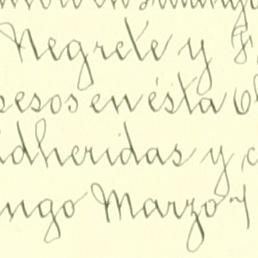 Negrete y F
sesos en ésta
dheridas y, c
ngo Marzo 7